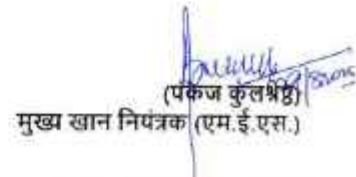 (पंकज कुलश्रेष्ठ)
मुख्य खान नियंत्रक (एम.ई.एस.)